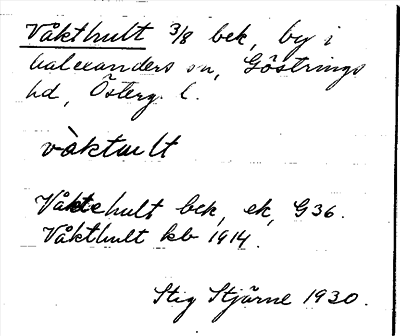 Våkthult 3/8 bek, by i
Kalexanders sn, Göstrings
hd, Österg. l.
vàktult
Våktehult bek, ek, G36.
Våkthult kb 1914.
Stig Stjärne 1930.